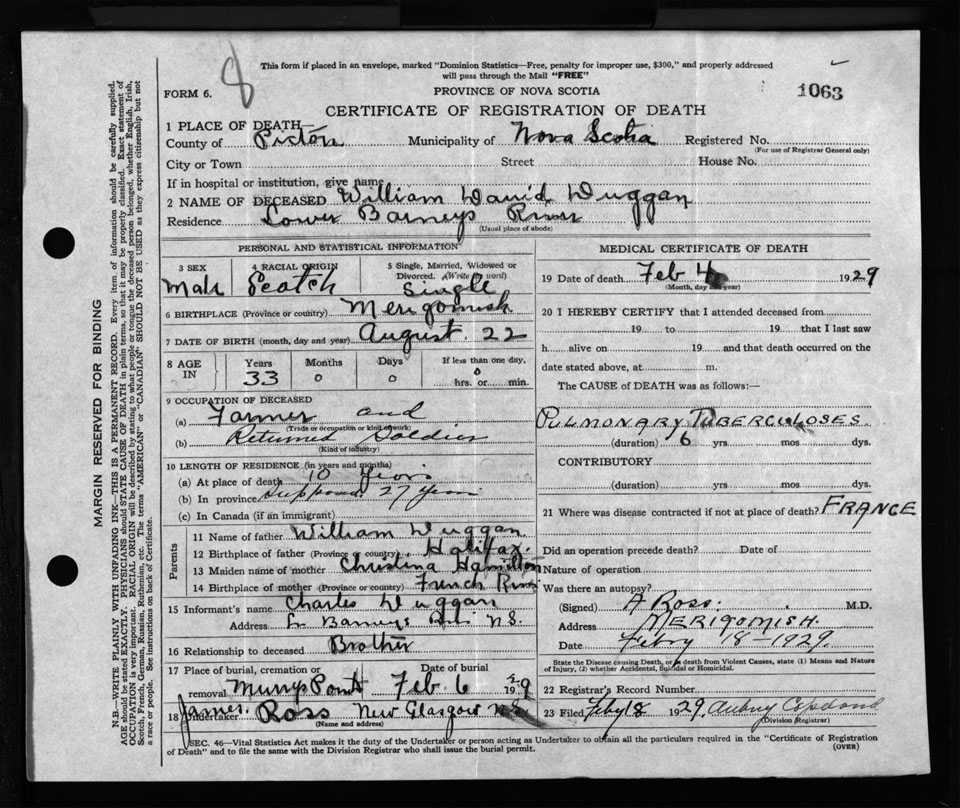 8
This form if placed in an envelope, marked "Dominion Statistics—Free, penalty for improper use, $300," and properly addressed
will pass through the Mail "FREE"
FORM 6.
PROVINCE OF NOVA SCOTIA
1063
CERTIFICATE OF REGISTRATION OF DEATH
1 PLACE OF DEATH—
County of Pictou Municipality of Nova Scotia Registered No.
(For use of Registrar General only)
City or Town Street House No.
If in hospital or institution, give name
2 NAME OF DECEASED William David Duggan
Residence Lower Barneys River
(Usual place of abode)
PERSONAL AND STATISTICAL INFORMATION
3 SEX 4 RACIAL ORIGIN 5 Single, Married, Widowed or
Divorced. (Write the word)
Male Scotch Single
6 BIRTHPLACE (Province or country) Merigomish
7 DATE OF BIRTH (month, day and year) August 22
8 AGE IN Years Months Days If less than one day,
33 0 0 0 hrs. or min.
9 OCCUPATION OF DECEASED
(a) Farmer and
(Trade or occupation or kind of work)
(b) Returned Soldier
(Kind of industry)
10 LENGTH OF RESIDENCE (in years and months)
(a) At place of death 10 Years
(b) In province 27 Years
(c) In Canada (if an immigrant)
Parents
11 Name of father William Duggan
12 Birthplace of father (Province or country) Halifax.
13 Maiden name of mother Christina Hamilton
14 Birthplace of mother (Province or country) French River
15 Informant's name Charles Duggan
Address Barneys N.S.
16 Relationship to deceased Brother
17 Place of burial, cremation or Date of burial
removal Feb 6
18 Undertaker James Ross New Glasgow N.S.
(Name and address)
MEDICAL CERTIFICATE OF DEATH
19 Date of death Feb 4 1929
(Month, day and year)
20 I HEREBY CERTIFY that I attended deceased from
19 to 19 that I last saw
h alive on 19 and that death occurred on the
date stated above, at m.
The CAUSE OF DEATH was as follows:
PULMONARY TUBERCULOSES.
(duration) 6 yrs mos dys.
CONTRIBUTORY
(duration) yrs mos dys.
21 Where was disease contracted if not at place of death? FRANCE
Did an operation precede death? Date of
Nature of operation
Was there an autopsy?
(Signed) A Ross. M.D.
Address MERIGOMISH.
Date Febry 18-1929.
State the Disease causing Death, or in death from Violent Causes, state (1) Means and Nature
of Injury, (2) whether Accidental, Suicidal or Homicidal.
22 Registrar's Record Number
23 Filed Feby 18 1929. Aubrey
(Division Registrar)
SEC. 46—Vital Statistics Act makes it the duty of the Undertaker or person acting as Undertaker to obtain all the particulars required in the "Certificate of Registration
of Death" and to file the same with the Division Registrar who shall issue the burial permit.
(OVER)
MARGIN RESERVED FOR BINDING
N.B.—WRITE PLAINLY WITH UNFADING INK—THIS IS A PERMANENT RECORD. Every item of information should be carefully supplied.
AGE should be stated EXACTLY. PHYSICIANS should STATE CAUSE OF DEATH in plain terms, so that it may be properly classified. Exact statement of
OCCUPATION is very important. RACIAL ORIGIN will be described by stating to what people or tongue the deceased person belonged, whether English, Irish,
Scotch, French, German, Russian, Ruthenian, etc. The terms "AMERICAN" or "CANADIAN" SHOULD NOT BE USED as they express citizenship but not
a race or people. See instructions on back of Certificate.